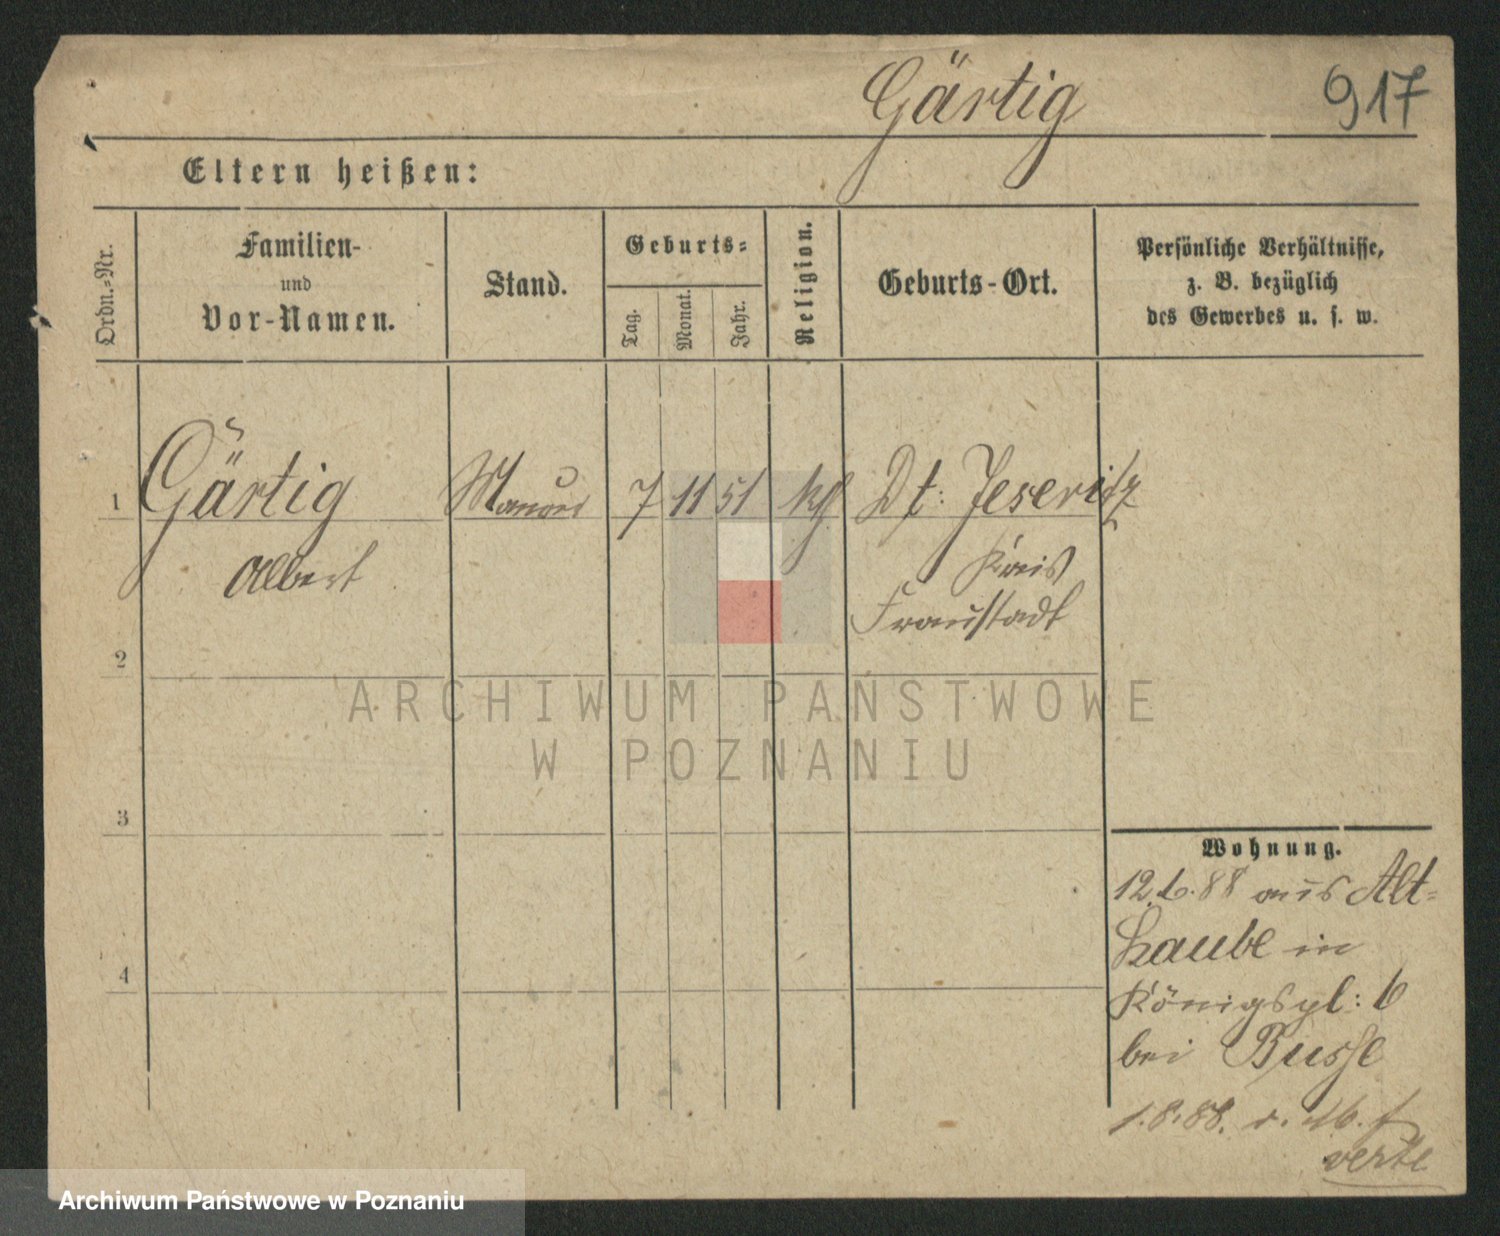 Gärtig
917
Eltern heißen:
Ordn.-Nr.
Familien-
und
Vor-Namen.
Stand.
Geburts-
Tag.
Monat.
Jahr.
Religion.
Geburts-Ort.
Persönliche Verhältnisse,
z. B. bezüglich
des Gewerbes u. s. w.
1 Gärtig Maurer 7 11 51 kg Dt: Jeseritz
Albert Kreis
Fraustadt
2
ARCHIWUM PAŃSTWOWE
W POZNANIU
3
4
Wohnung.
12.6.88 aus Alt-
Laube in
Königspl: 6
bei Busse
1.8.88.
verte
Archiwum Państwowe w Poznaniu